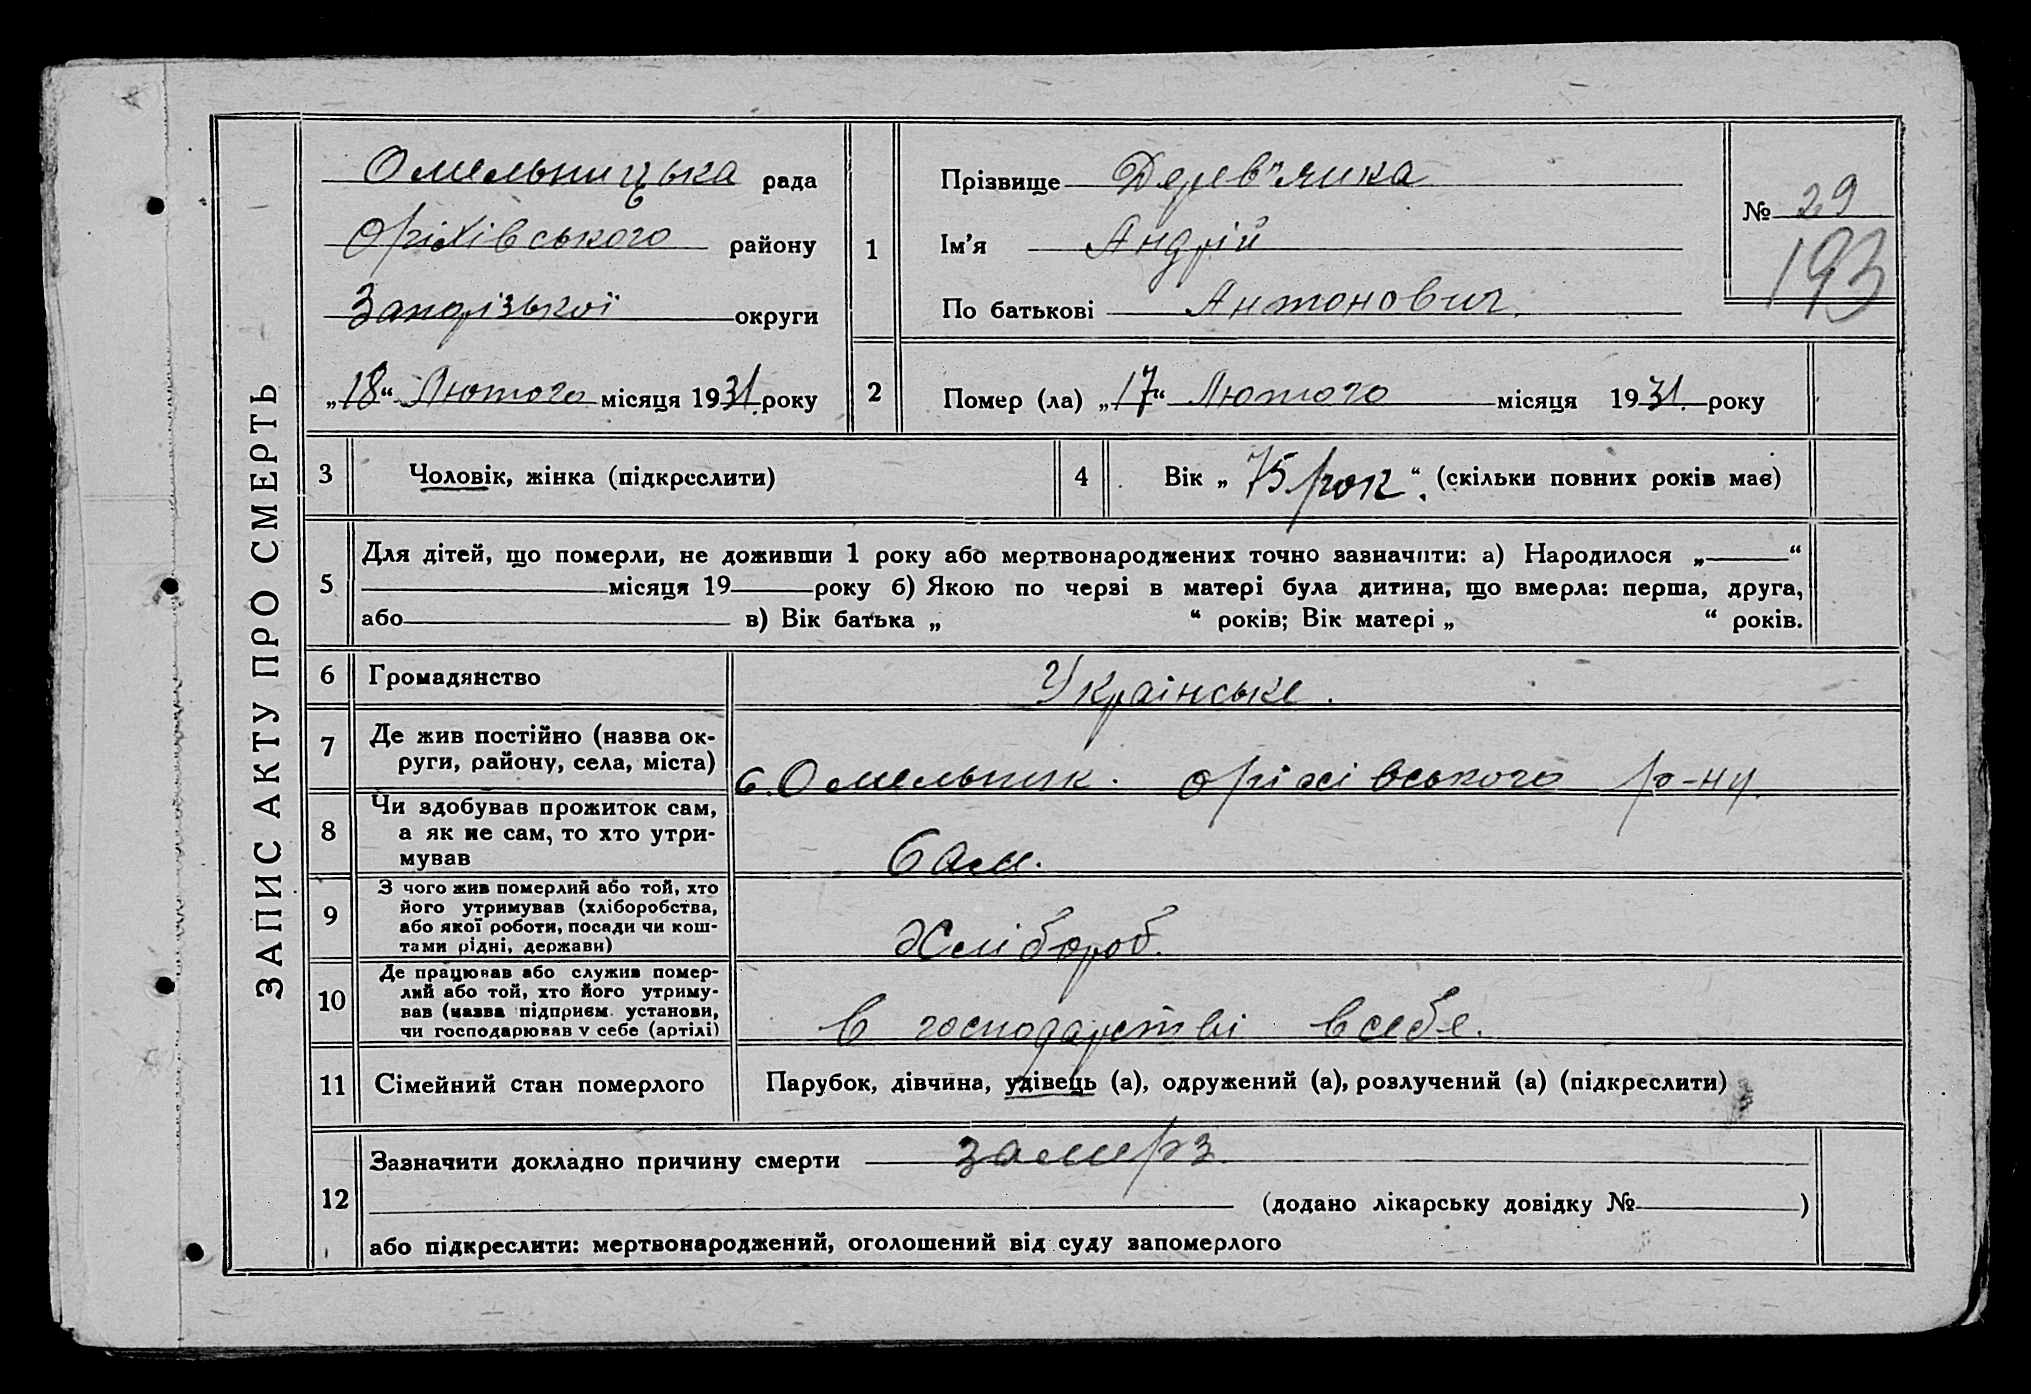 ЗАПИС АКТУ ПРО СМЕРТЬ
Омельницька рада
Оріхівського району
Запорізької округи
„18“ Лютого місяця 1931 року
1
Прізвище Дерев'янка
Ім'я Андрій
По батькові Антонович.
№ 29
193
2
Помер (ла) „17“ Лютого місяця 1931 року
3 Чоловік, жінка (підкреслити)
4 Вік „75 рок“. (скільки повних років має)
5
Для дітей, що померли, не доживши 1 року або мертвонароджених точно зазначити: а) Народилося „ “
місяця 19 року б) Якою по черзі в матері була дитина, що вмерла: перша, друга,
або в) Вік батька „ “ років; Вік матері „ “ років.
6 Громадянство Українське.
7 Де жив постійно (назва ок-
руги, району, села, міста)
с. Омельник. Оріхівського р-ну.
8 Чи здобував прожиток сам,
а як не сам, то хто утри-
мував
Сам.
9 З чого жив померлий або той, хто
його утримував (хліборобства,
або якої роботи, посади чи кош-
тами рідні, держави)
Хлібороб.
10 Де працював або служив помер-
лий або той, хто його утриму-
вав (назва підприєм. установи,
чи господарював у себе (артілі)
В господарстві в себе.
11 Сімейний стан померлого Парубок, дівчина, удівець (а), одружений (а), розлучений (а) (підкреслити)
12
Зазначити докладно причину смерти замерз
(додано лікарську довідку № )
або підкреслити: мертвонароджений, оголошений від суду запомерлого